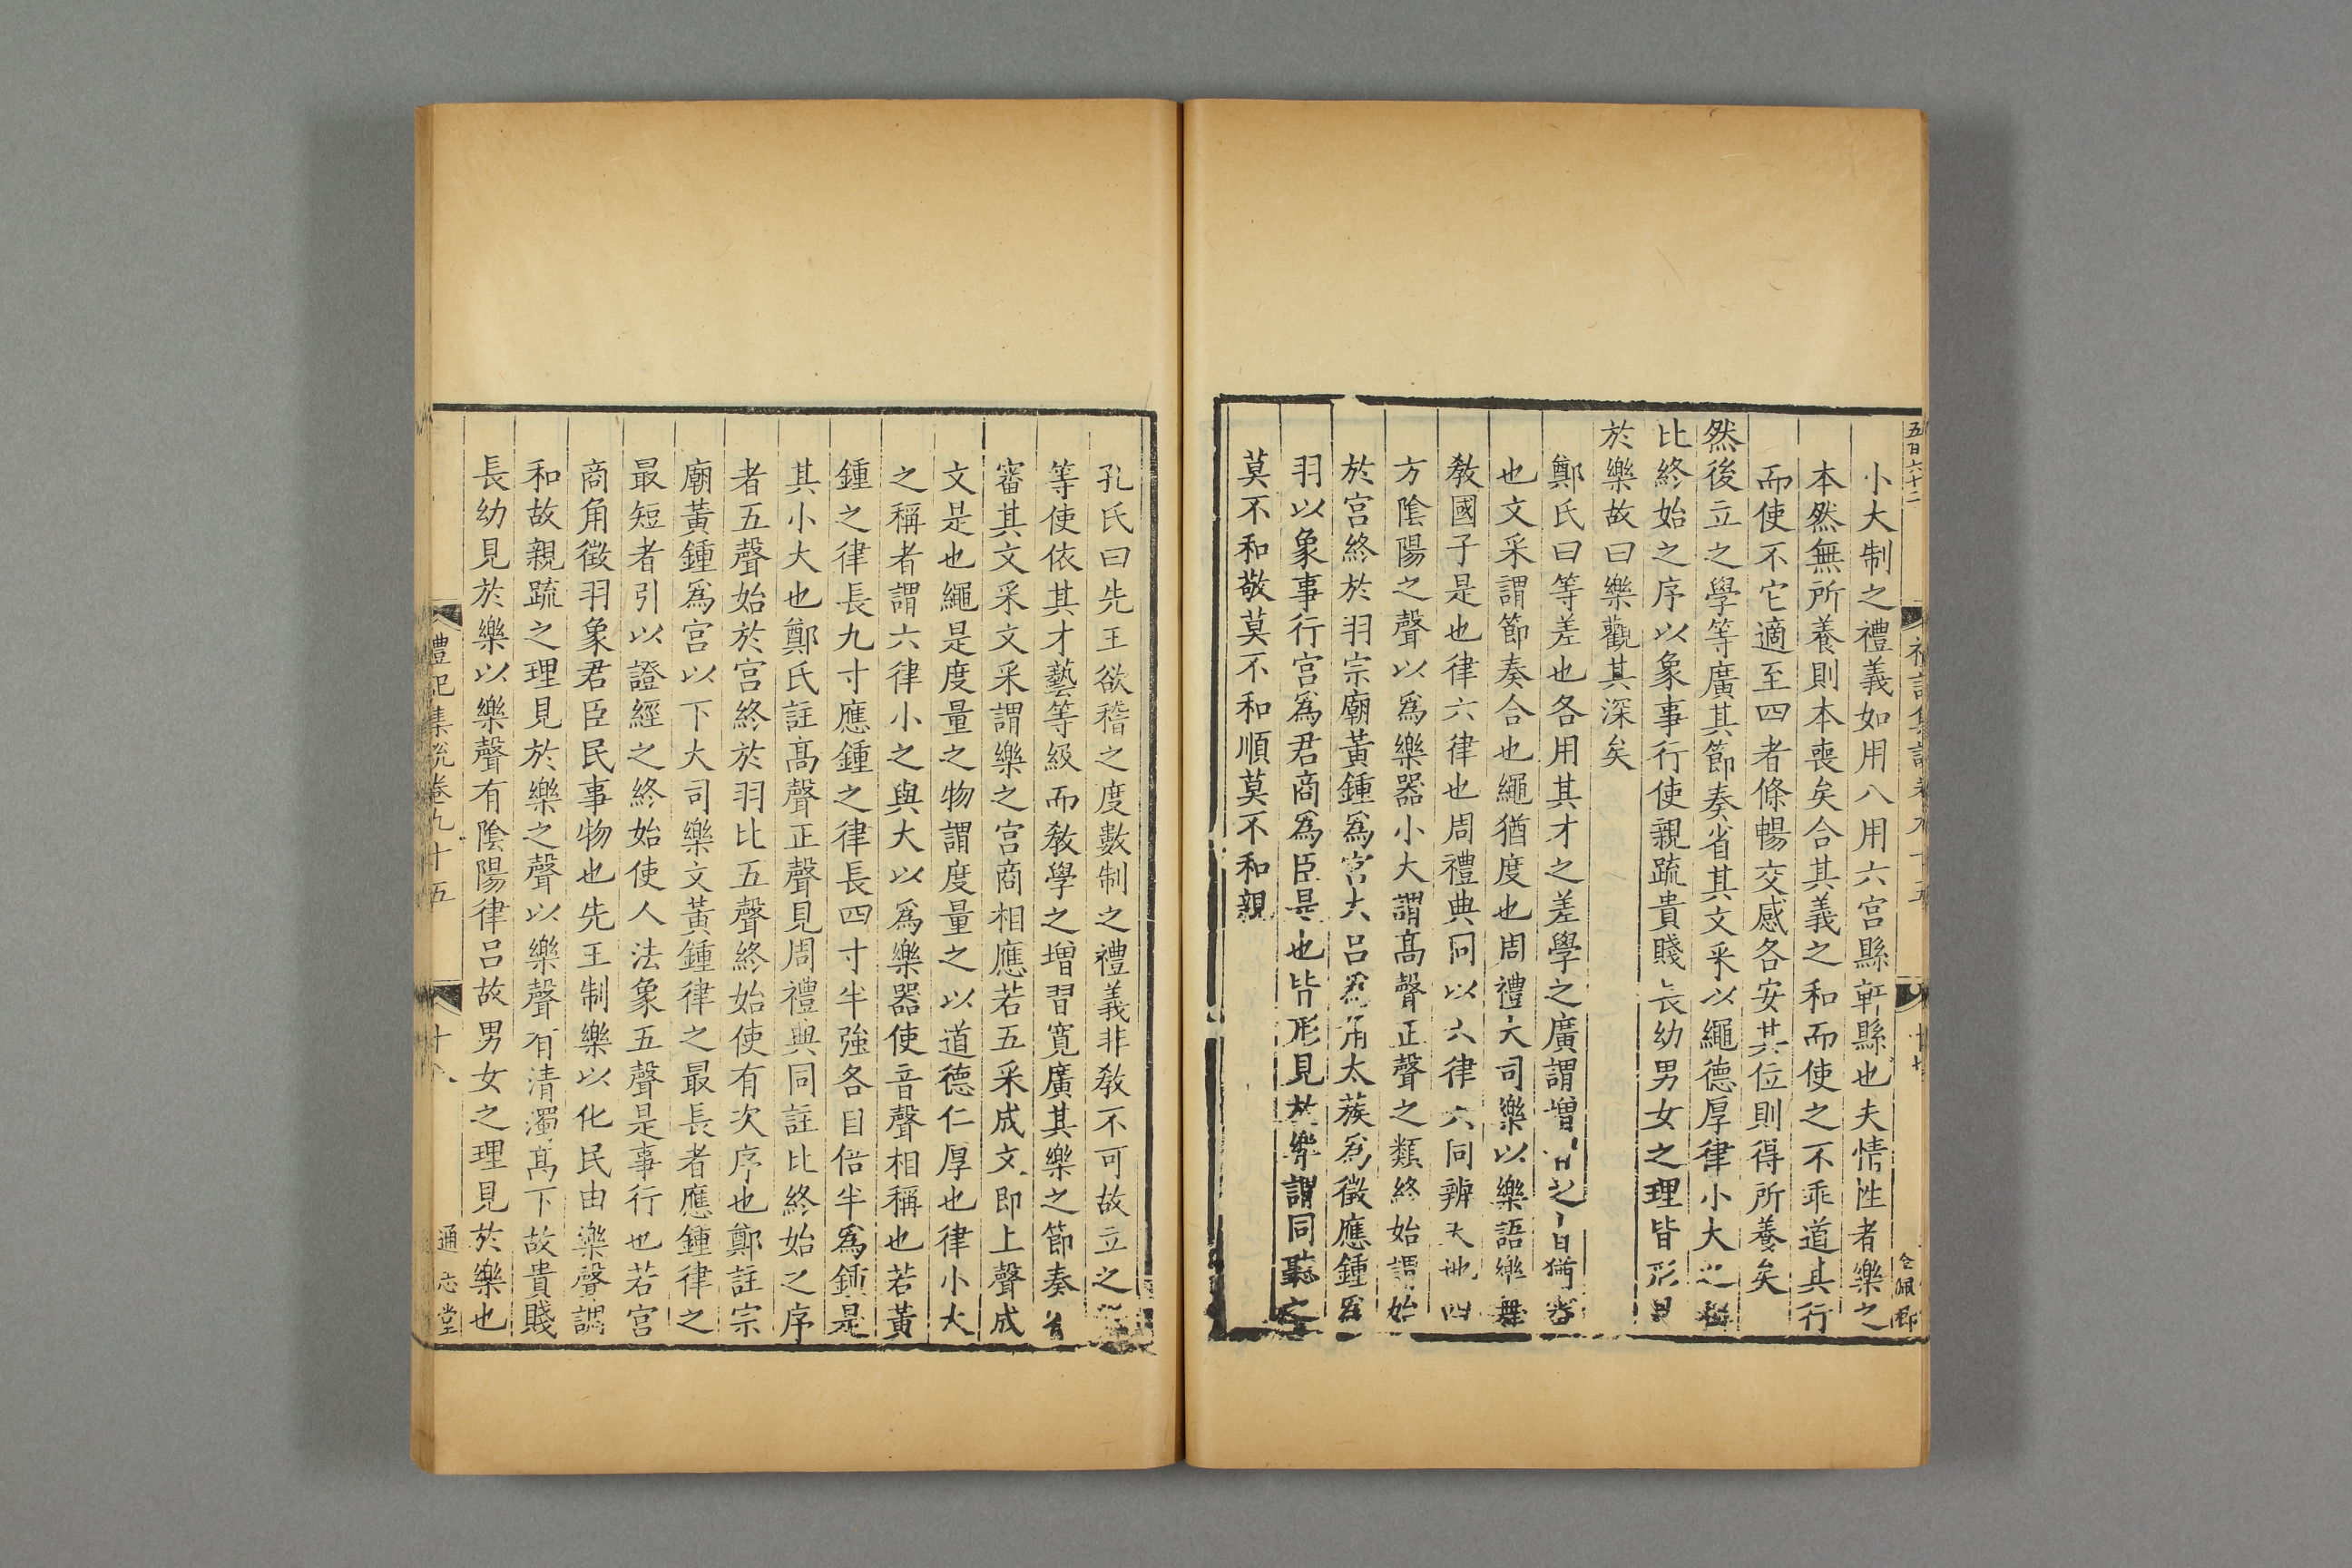 五百六十二
小大制之禮義如用八用六宮縣軒縣也夫情性者樂之
本然無所養則本喪矣合其義之和而使之不乖道其行
而使不它適至四者條暢交感各安其位則得所養矣
然後立之學等廣其節奏省其文采以繩德厚律小大之稱
比終始之序以象事行使親疏貴賤長幼男女之理皆形見
於樂故曰樂觀其深矣
鄭氏曰等差也各用其才之差學之廣謂增習之省猶審
也文采謂節奏合也繩猶度也周禮大司樂以樂語樂舞
教國子是也律六律也周禮典同以六律六同辨天地四
方陰陽之聲以為樂器小大謂高聲正聲之類終始謂始
於宮終於羽宗廟黃鍾為宮大呂為角太蔟為徵應鍾為
羽以象事行宮為君商為臣是也皆形見於樂謂同聽之
莫不和敬莫不和順莫不和親
孔氏曰先王欲稽之度數制之禮義非教不可故立之
等使依其才藝等級而教學之增習寬廣其樂之節奏省
審其文采文采謂樂之宮商相應若五采成文即上聲成
文是也繩是度量之物謂度量之以道德仁厚也律小大
之稱者謂六律小之與大以為樂器使音聲相稱也若黃
鍾之律長九寸應鍾之律長四寸半強各自倍半為鍾是
其小大也鄭氏註高聲正聲見周禮典同註比終始之序
者五聲始於宮終於羽比五聲終始使有次序也鄭註宗
廟黃鍾為宮以下大司樂文黃鍾律之最長者應鍾律之
最短者引以證經之終始使人法象五聲是事行也若宮
商角徵羽象君臣民事物也先王制樂以化民由樂聲調
和故親疏之理見於樂之聲以樂聲有清濁高下故貴賤
長幼見於樂以樂聲有陰陽律呂故男女之理見於樂也
禮記集說卷九十五
十八
通志堂